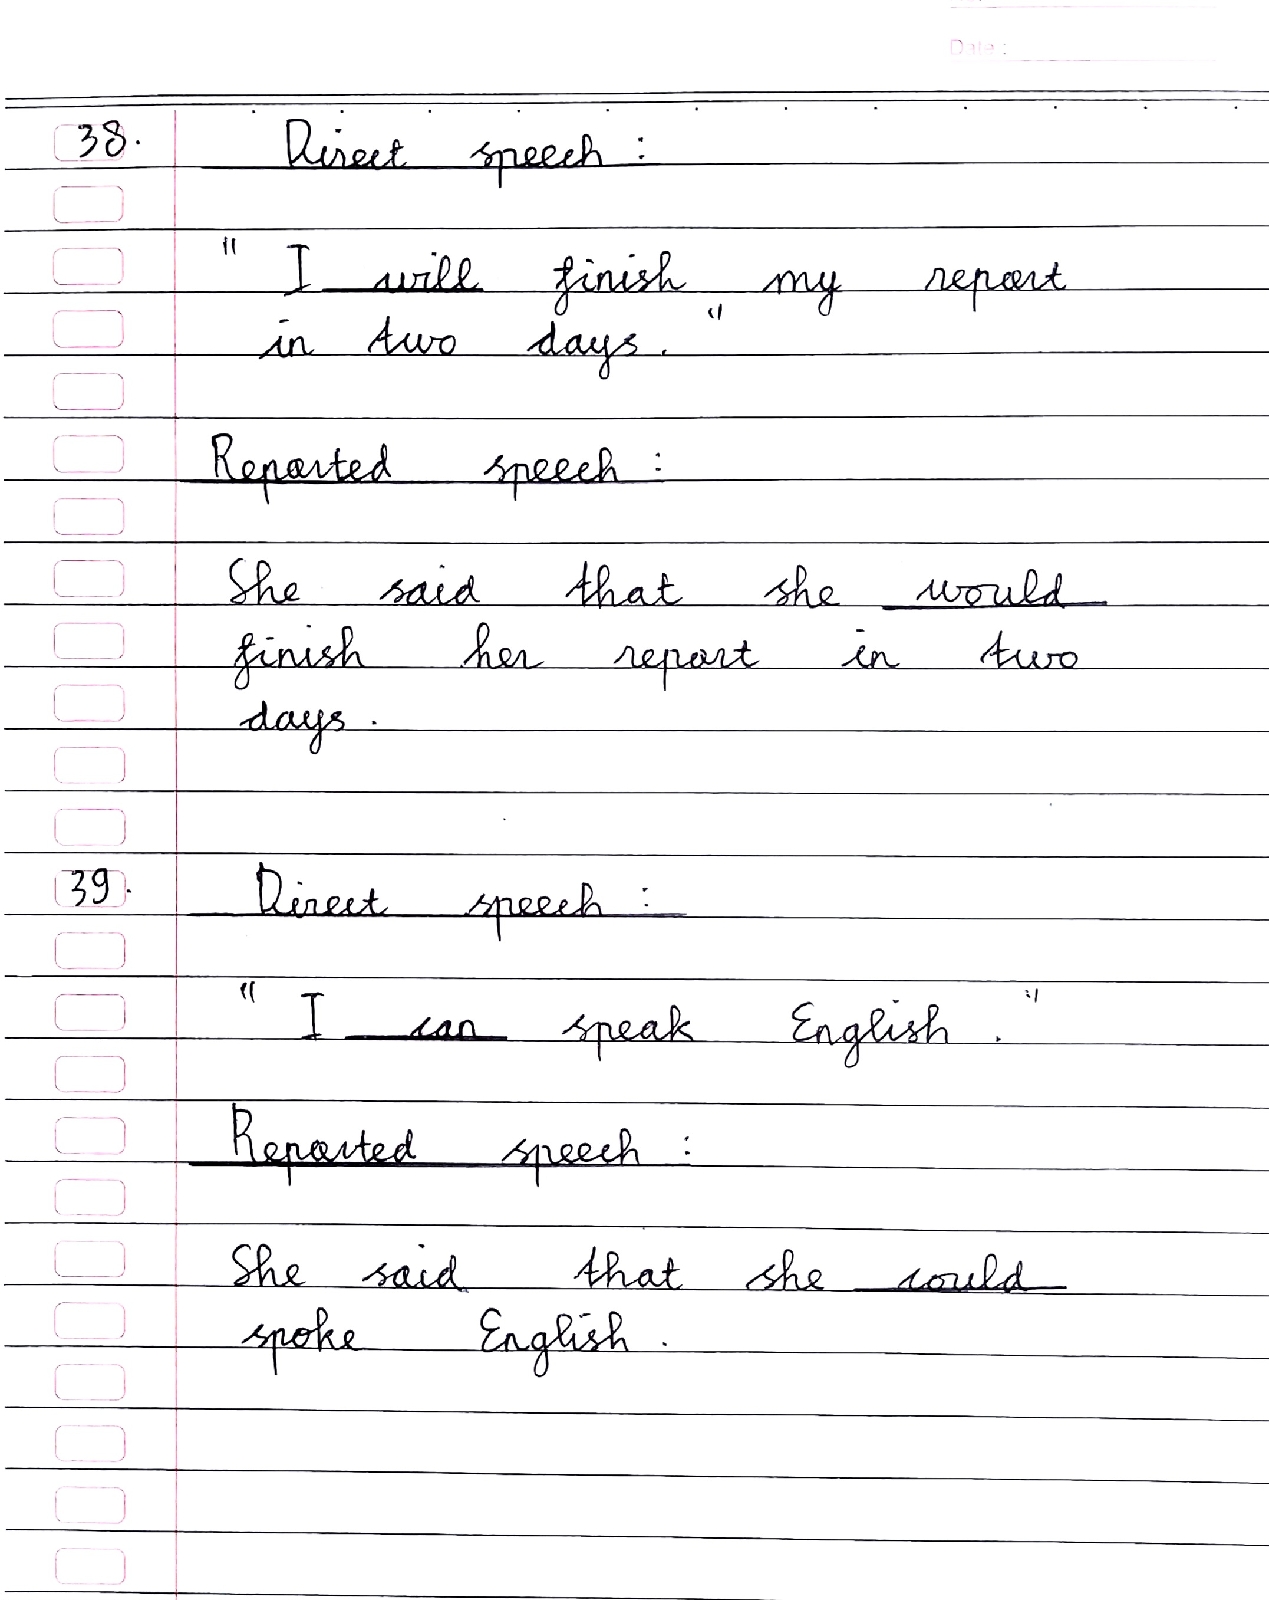 Date :
38. Direct speech :
" I will finish my report
in two days. "
Reported speech :
She said that she would
finish her report in two
days.
39. Direct speech :
" I can speak English . "
Reported speech :
She said that she could
spoke English .